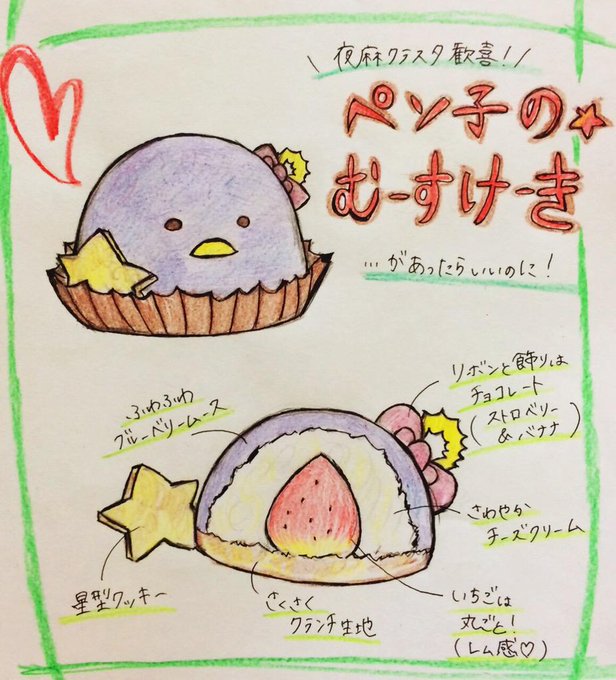 \ 夜麻クラスタ歓喜! /
ペン子の
むーすけーき
…があったらいいのに!
リボンと飾りは
チョコレート
(ストロベリー
&バナナ)
ふわふわ
ブルーベリームース
さわやか
チーズクリーム
星型クッキー
さくさく
クランチ生地
いちごは
丸ごと!
(レム感♡)